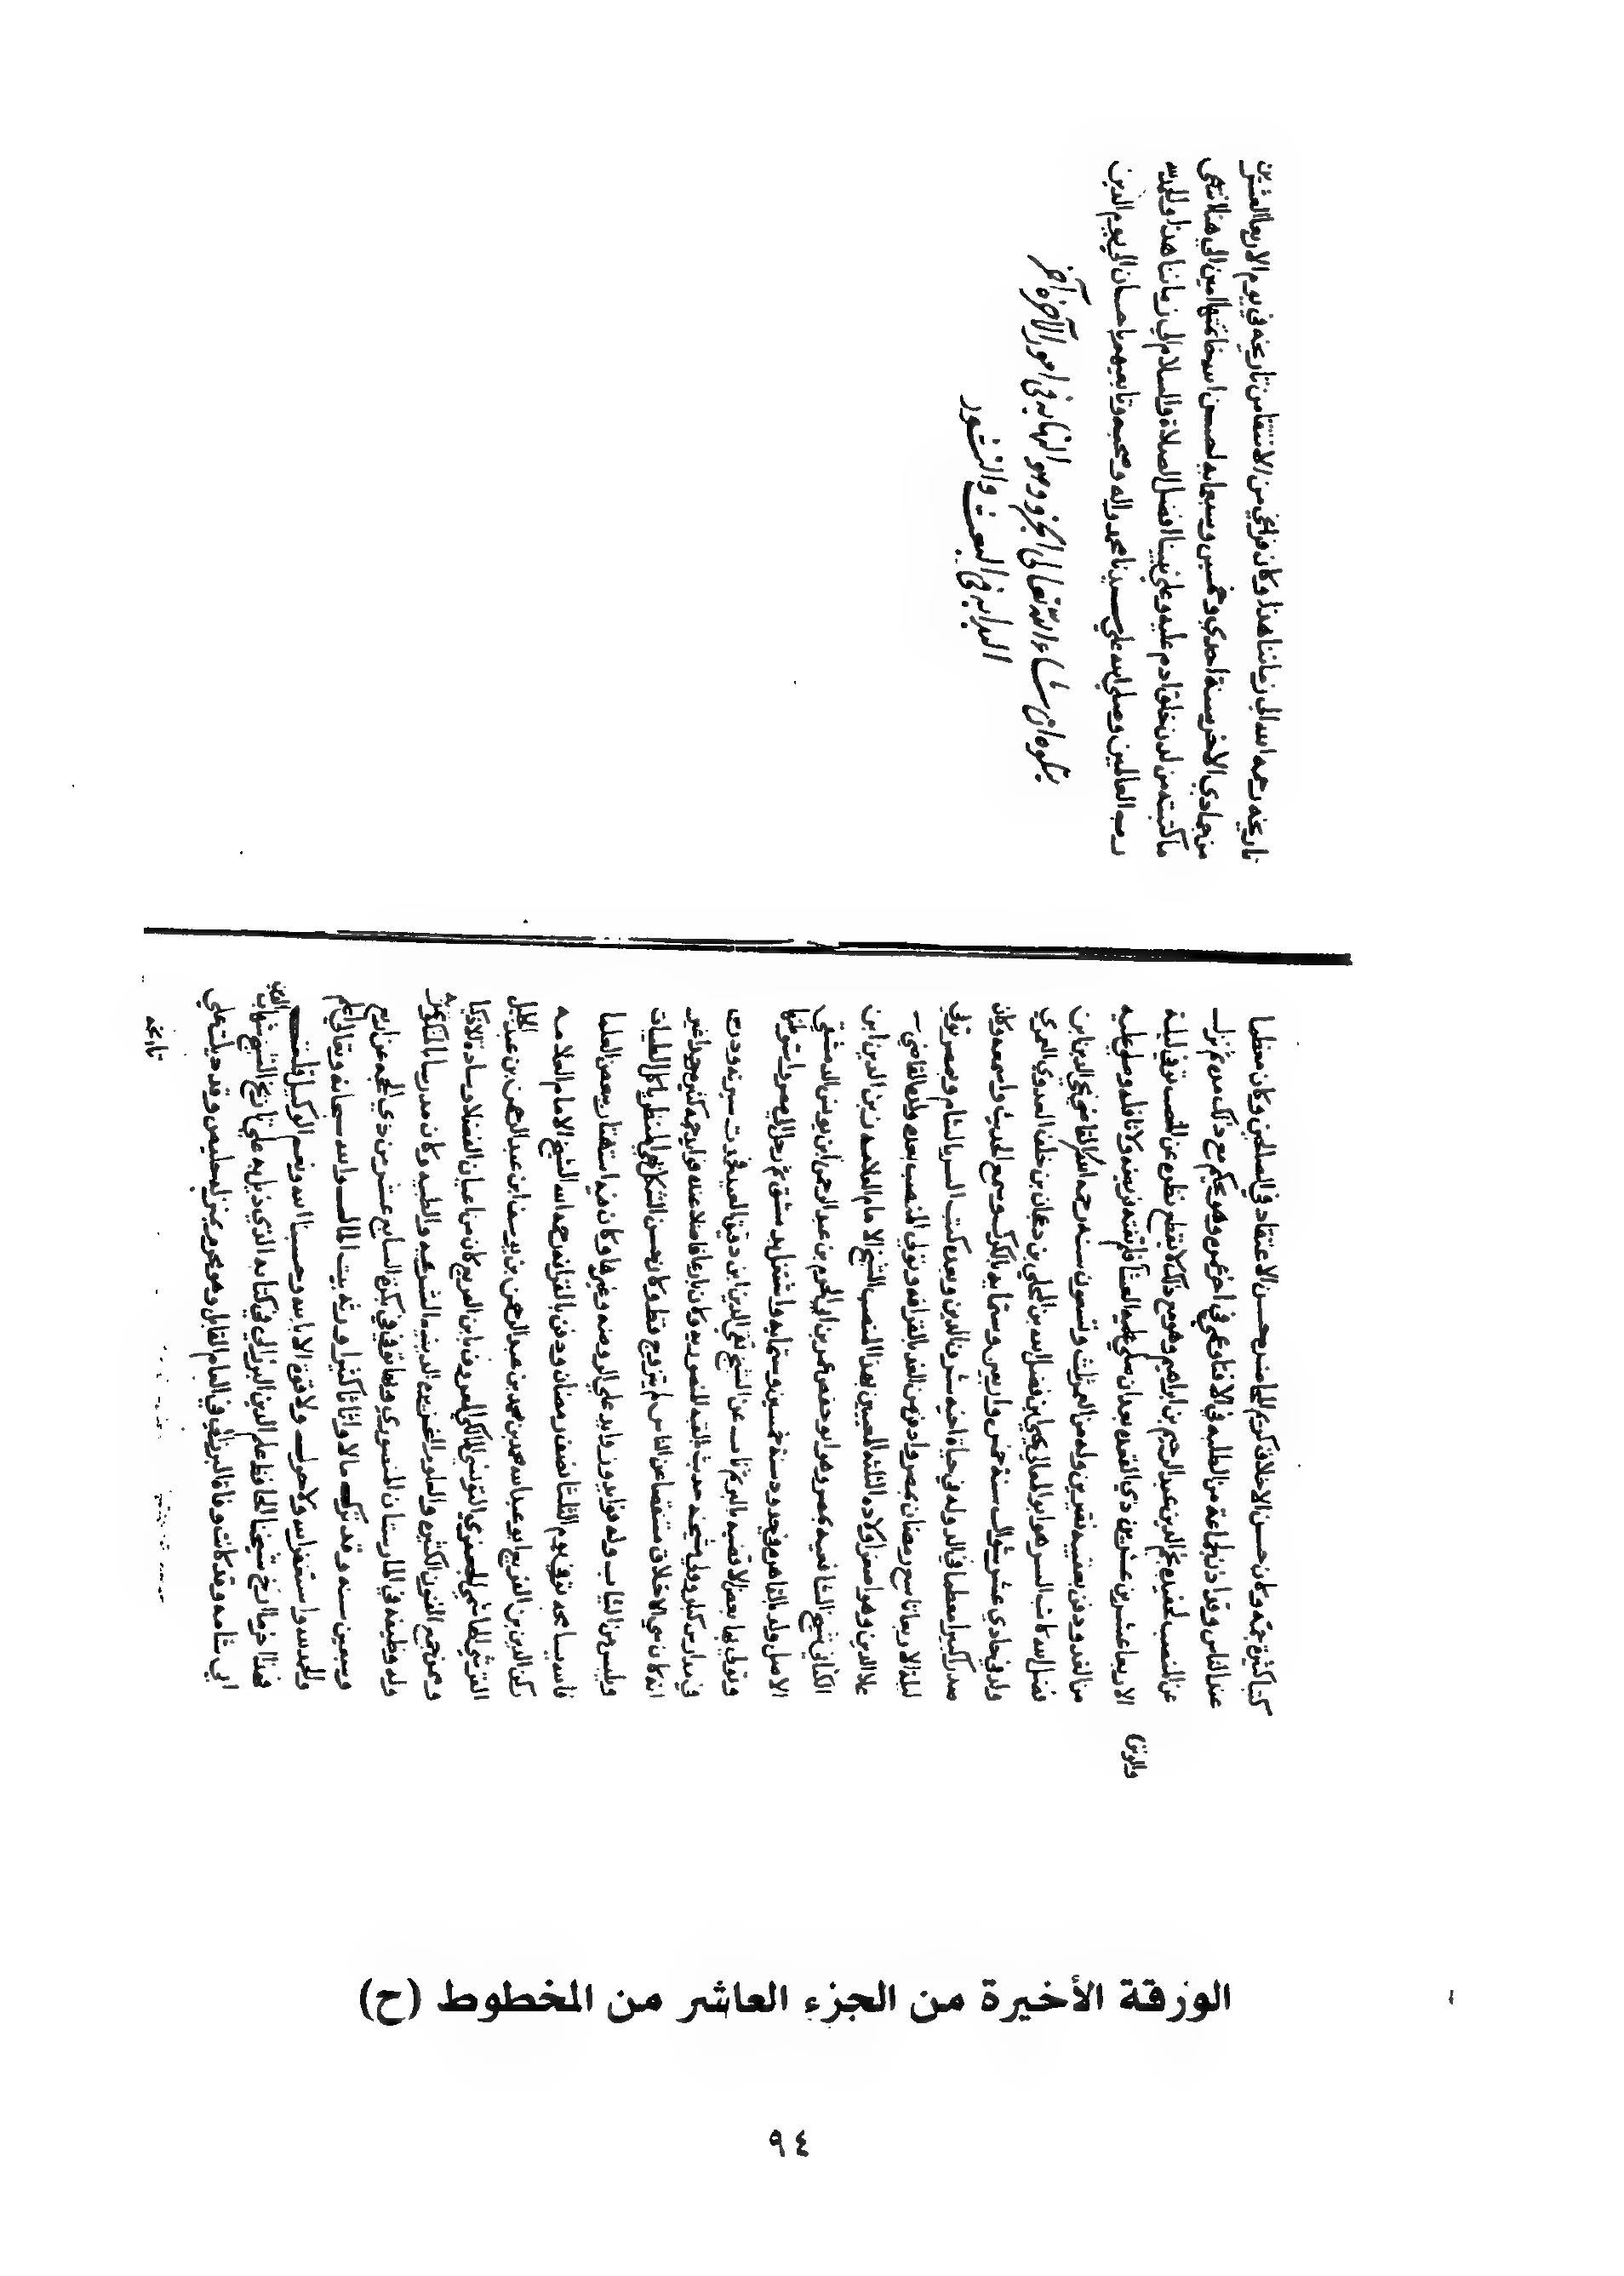 كنا كثير حجه وكان حسن الاخلاق كريم المحاضر حسن الاعتقاد في الصالحين وكان معظما
عند الناس وقد اذن لجماعة من الطلبه في الافتا وعمي في اخر عمره وهو يحكم مع ذلك من ثم نزل
عن المنصب لحفيده نجم الدين عبد الرحيم بن ابراهيم وهو مع ذلك لا ينقطع نظره عن المنصب توفي ليلة
الاربعا عشرين ذي القعده بعد ان صلي عليه العشا فلم تفته فريضه ولا نافله وصلي عليه
والوتر
من الغد ودفن
فضل الله كاتب السر هو ابو المعالي يحيى بن فضل الله بن المجلي بن دعجان بن خلف العدوي العمري
ولد في حادي عشر شوال سنة خمس واربعين وستمايه بالكرك وسمع الحديث واسمعه وكان
صدرا كبيرا معظما في الدوله في حياة اخيه شرف الدين وبعده كتب السر بالشام وبمصر توفي
ليلة الاربعا تاسع رمضان بمصر ودفن من الغد بالقرافه وتولى المنصب بعده ولده القاضي
علا الدين وهو اصغر اولاده الثلثه المعينين لهذا المنصب الشيخ الامام العلامه زين الدين ابن
الكتاني شيخ الشافعيه بمصر وهو ابو حفص عمر بن ابي الحرم بن عبد الرحمن ابن يونس الدمشقي
الاصل ولد بالقاهره في حدود سنة خمسين وستمايه واشتغل بدمشق ثم رحل الى مصر واستوطنها
وتولى بها بعض الاقضيه بالبر ثم ناب عن الشيخ تقي الدين ابن دقيق العيد فحمدت سيرته ودرس
في مدارس كبار وولي مشيخة حديث القبه المنصوريه وكان بارعا فاضلا عنده فوايد جمه كثيره جدا غير
انه كان سي الاخلاق منقبضا عن الناس لم يتزوج قط وكان حسن الشكل بهي المنظر ياكل الطيبات
ويلبس لين الثياب وله فوايد وزوايد على الروضه وغيرها وكان فيه استهتار ببعض العلما
فالله يسامحه توفي يوم الثلثا نصف رمضان ودفن بالقرافه رحمه الله الشيخ الامام العلامه
ركن الدين بن القوبع ابو عبد الله محمد بن محمد بن عبد الرحمن بن يوسف ابن عبد الرحمن بن عبد الجليل
القرشي الهاشمي الجعفري التونسي المالكي المعروف بابن القوبع كان من اعيان الفضلا وسادة الاذكيا
وممن جمع الفنون الكثيره والعلوم الغزيره الدينيه الشرعيه والطبيه وكان مدرسا بالمنكوتمريه
وله وظيفه في المارستان المنصوري وبها توفي في بكرة السابع عشر من ذي الحجه عن اربع
وسبعين سنه وقد ترك مالا واثاثا كثيرا ورثه بيت المال والله سبحانه وتعالى اعلم
والحمد لله واستغفر الله ولا حول ولا قوة الا بالله وحسبنا الله ونعم الوكيل قلت
فهذا اخر ما ارخ شيخنا الحافظ علم الدين البرزالي في كتابه الذي ذيل به على تاريخ الشيخ شهاب الدين
ابي شامه وقد كانت وفاة البرزالي في العام القابل وهو محرم بمنزله خليص وقد ذيلت على
تاريخه
تاريخه رحمه الله الى زماننا هذا وكان فراغي من الانتقا من تاريخه في يوم الاربعا العشرين
من جمادي الاخر سنة احدي وخمسين وسبعمايه احسن الله خاتمتها امين الى هنا انتهى
ما كتبته من لدن خلق ادم عليه وعلى نبينا افضل الصلاة والسلام الى زماننا هذا ولله الحمد
رب العالمين وصلى الله على سيدنا محمد واله وصحبه وتابعيهم باحسان الى يوم الدين
يتلوه ان شاء الله تعالى الجزء وهو النهايه في امور الآخرة آخر
البدايه في البعث والنشور
الورقة الأخيرة من الجزء العاشر من المخطوط (ح)
٩٤